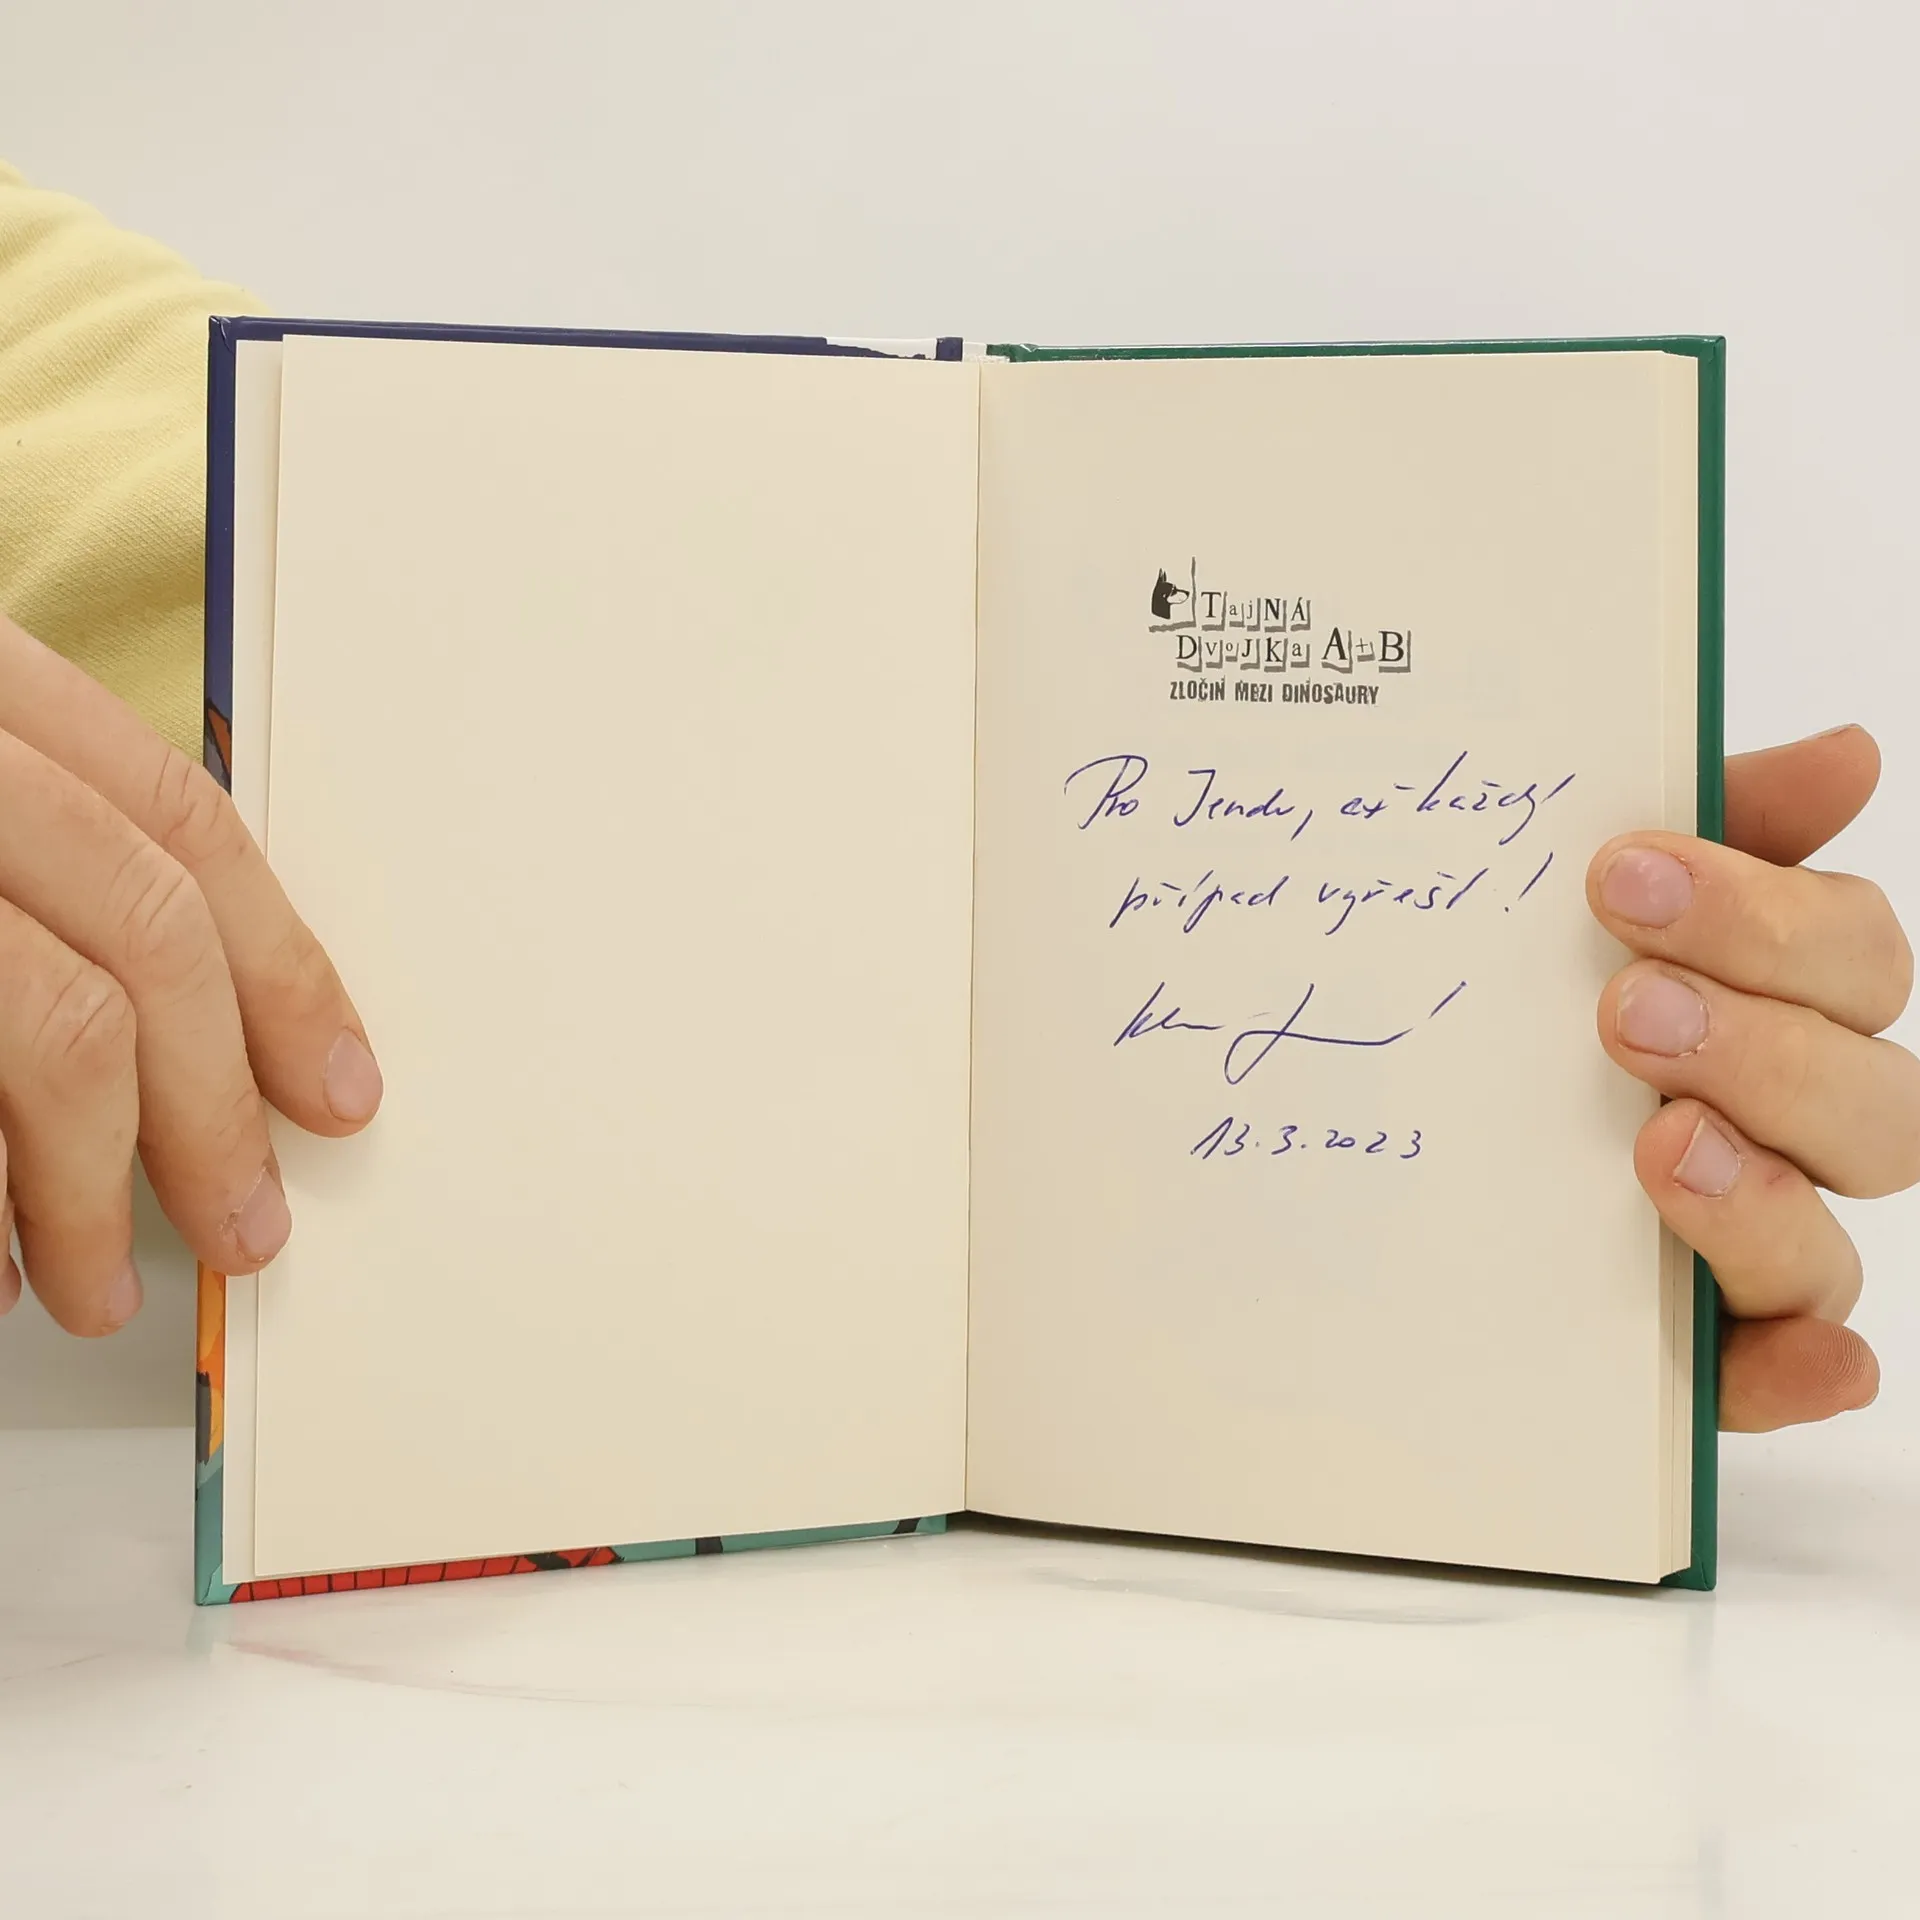 TajNÁ
DvoJKa A+B
ZLOČIN MEZI DINOSAURY
Pro Jendu, ať každý
případ vyřeší!
13.3.2023